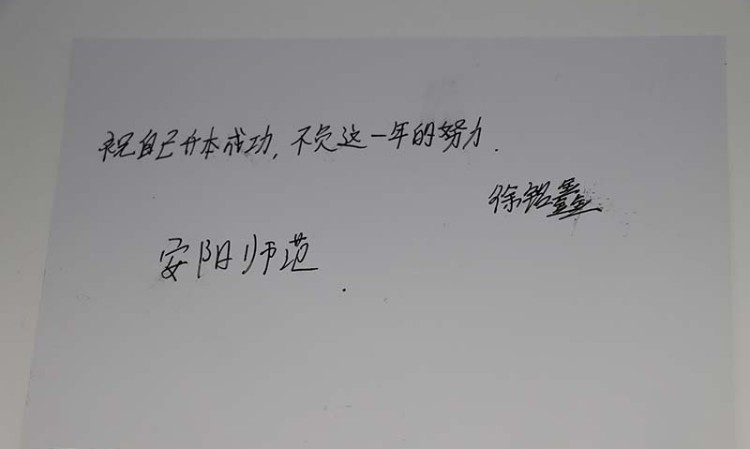 祝自己升本成功,不负这一年的努力.
徐铭鑫
安阳师范.